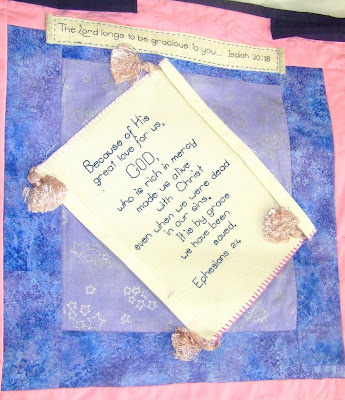 The Lord longs to be gracious to you... Isaiah 30:18
Because of His
great love for us,
GOD,
who is rich in mercy
made us alive
with Christ
even when we were dead
in our sins,
It is by grace
we have been
saved.
Ephesians 2:4